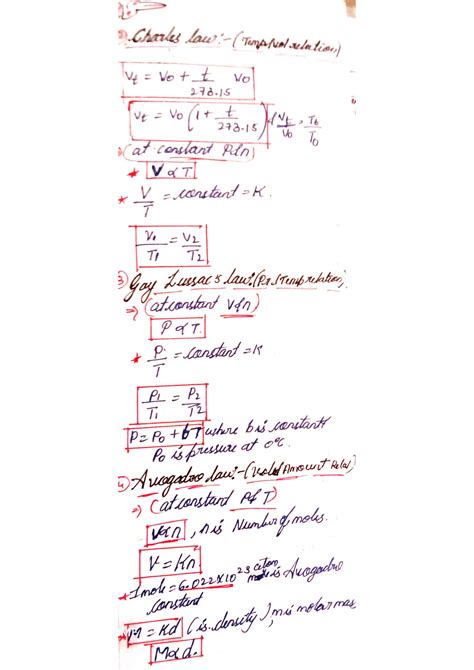 Charles law:- (Temp & vol relation)
Vt = V0 + t/273.15 V0
Vt = V0 (1 + t/273.15) Vt/V0 = Tt/T0
(at constant P & n)
* V ∝ T
* V/T = constant = K.
V1/T1 = V2/T2
3) Gay Lussac's law:- (Pre. / Temp relation)
=> (at constant V & n)
P ∝ T.
* P/T = constant = K
P1/T1 = P2/T2
P = P0 + bT where b is constant &
P0 is pressure at 0°c.
4) Avogadro law:- (Vol & Amount Rela)
=> (at constant P & T)
V ∝ n , n is Number of moles.
V = Kn
* 1 mole = 6.022x10^23 is Avogadro
constant
* M = Kd (is density), m is molar mas
M ∝ d.